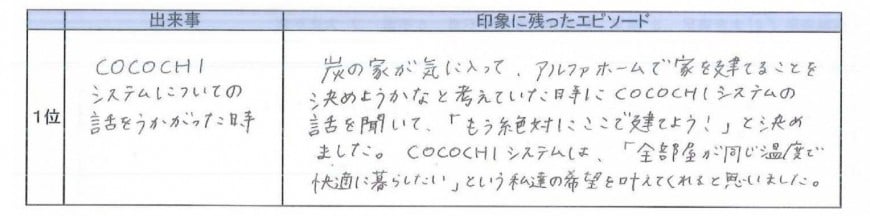 出来事
印象に残ったエピソード
1位
COCOCHI
システムについての
話をうかがった時
炭の家が気に入って、アルファホームで家を建てることを
決めようかなと考えていた時にCOCOCHIシステムの
話を聞いて、「もう絶対にここで建てよう！」と決め
ました。COCOCHIシステムは、「全部屋が同じ温度で
快適に暮らしたい」という私達の希望を叶えてくれると思いました。